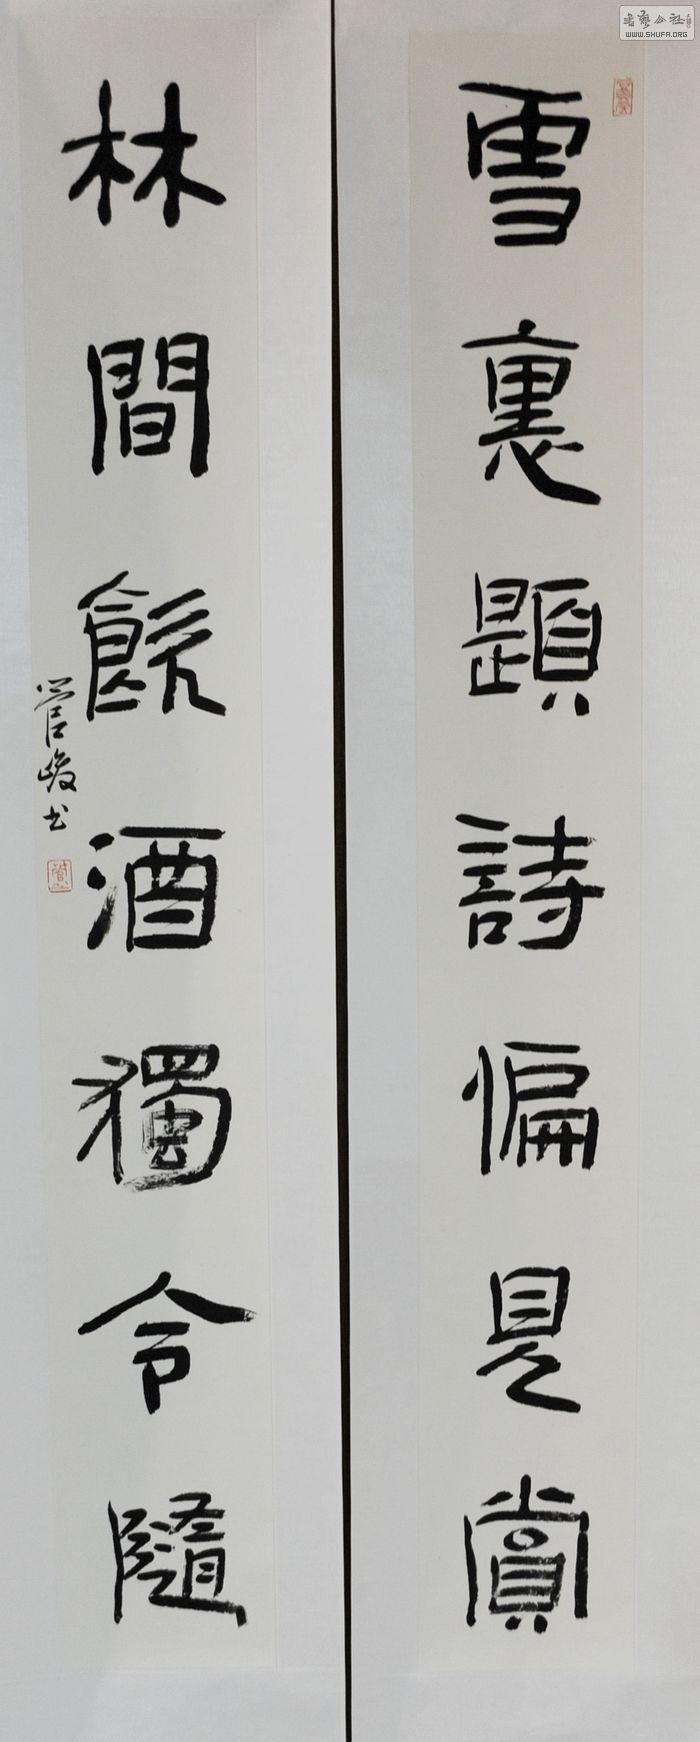 雪裏題詩偏見賞
林間飲酒獨令隨
管峻书
書藝公社
WWW.SHUFA.ORG